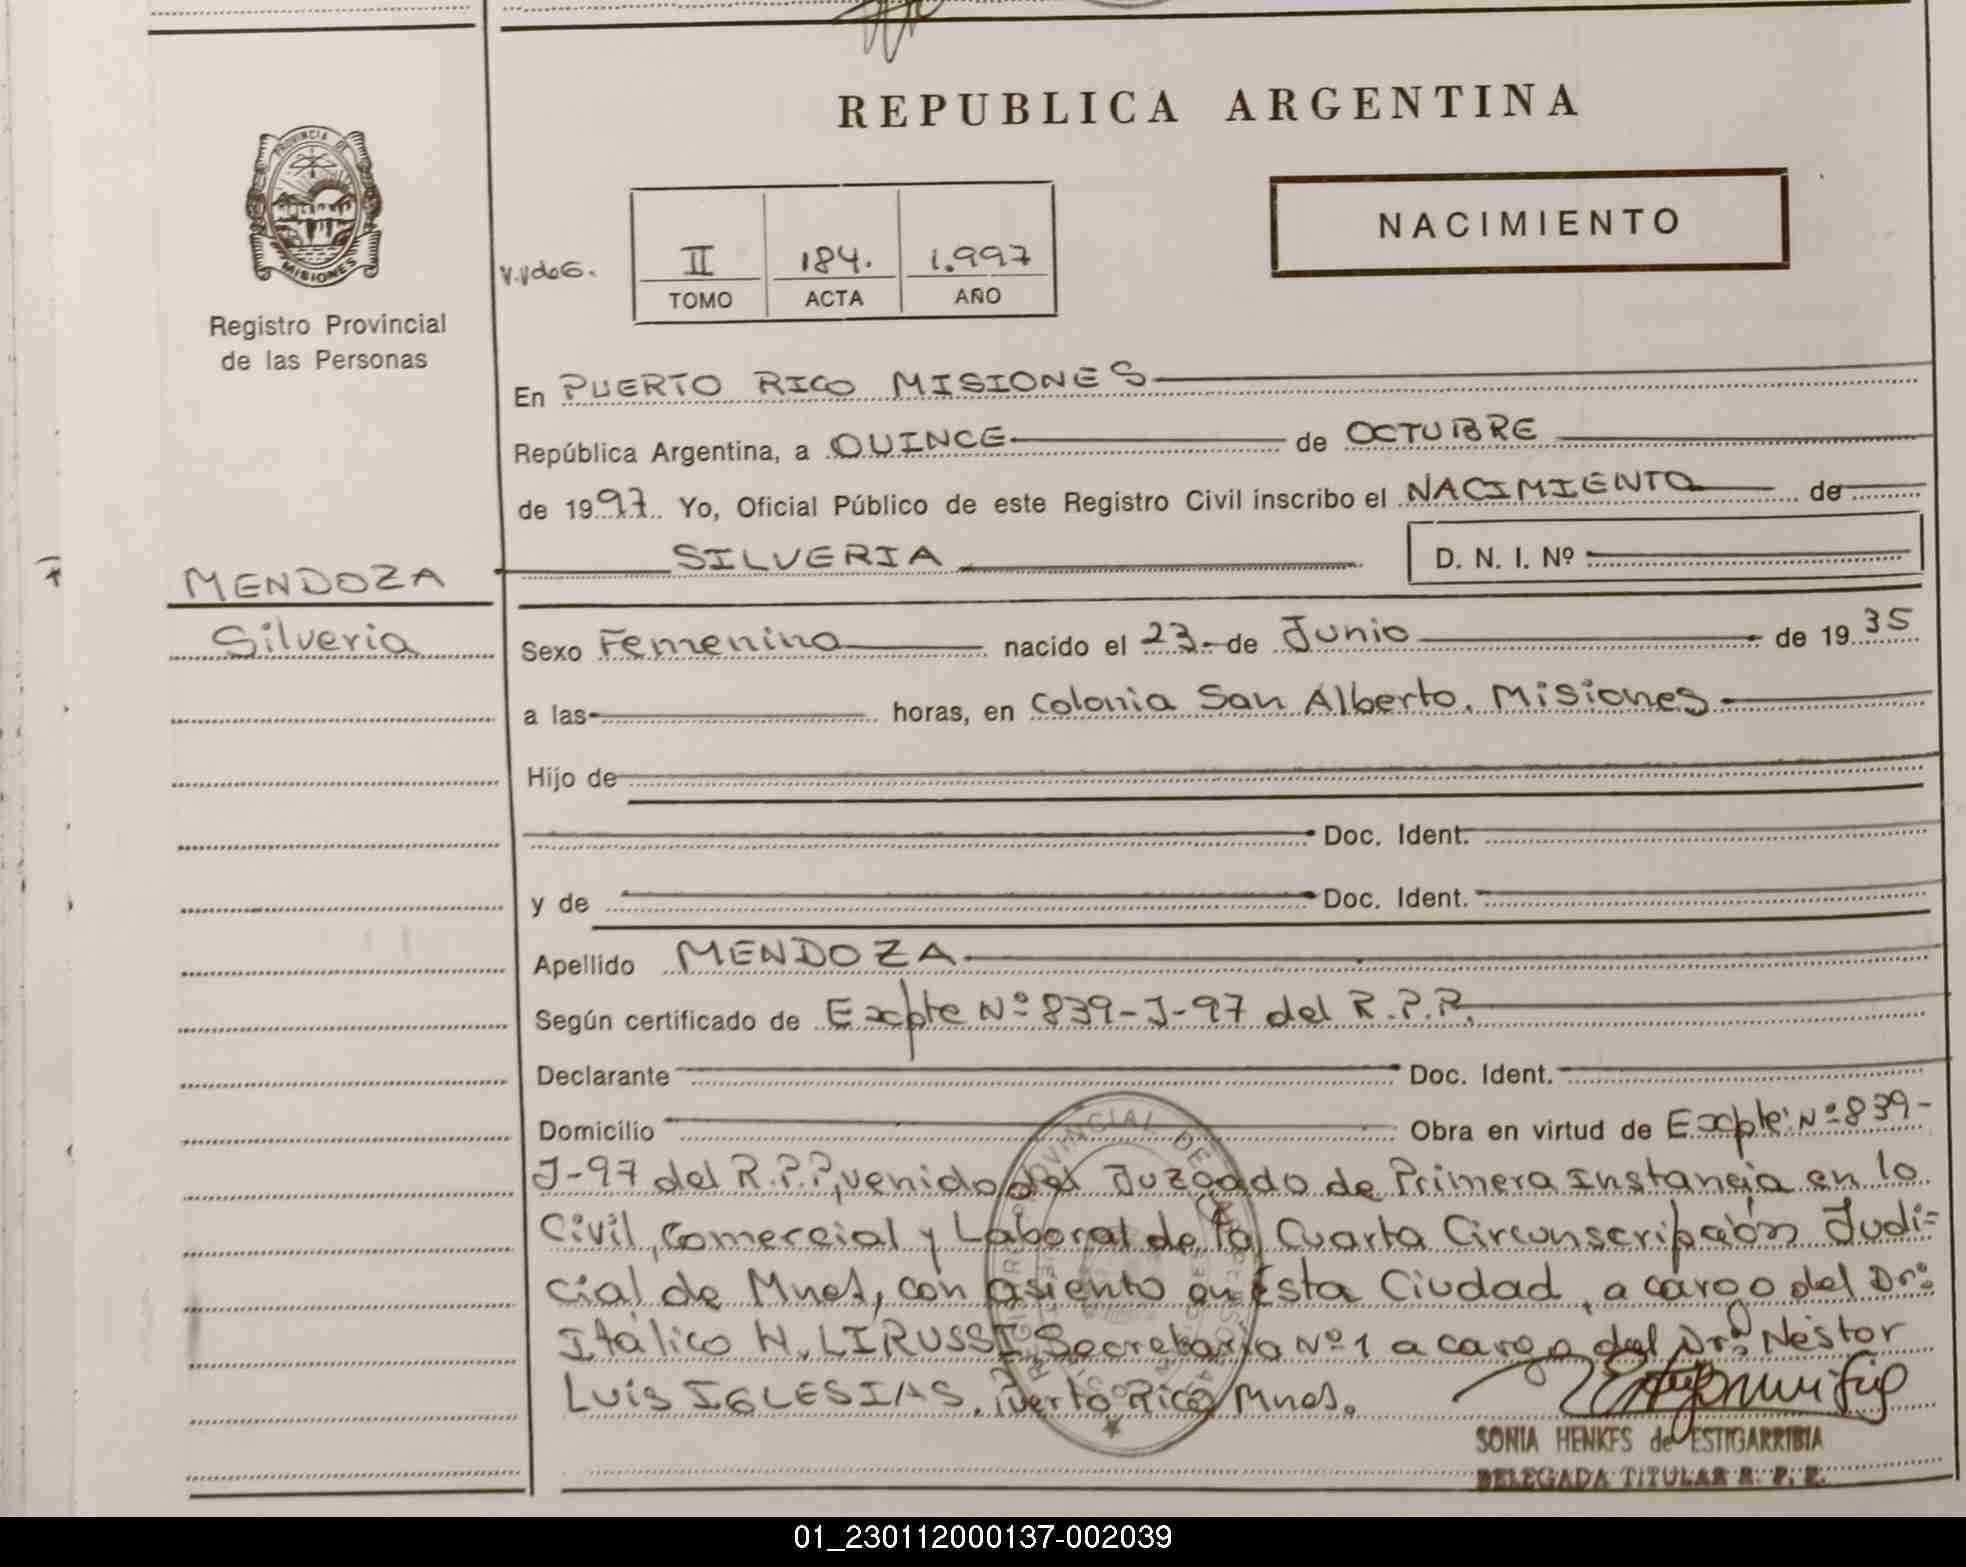 REPUBLICA ARGENTINA
PROVINCIA DE MISIONES
Registro Provincial
de las Personas
NACIMIENTO
II 184. 1.997
TOMO ACTA AÑO
En PUERTO RICO MISIONES
República Argentina, a QUINCE de OCTUBRE
de 1997. Yo, Oficial Público de este Registro Civil inscribo el NACIMIENTO de
SILVERIA D. N. I. Nº
MENDOZA
Silveria
Sexo Femenino nacido el 23 de Junio de 1935
a las horas, en Colonia San Alberto, Misiones
Hijo de
Doc. Ident.
y de Doc. Ident.
Apellido MENDOZA
Según certificado de Expte Nº 839-J-97 del R.P.P.
Declarante Doc. Ident.
Domicilio Obra en virtud de Expte Nº 839-
J-97 del R.P.P, venido del Juzgado de Primera Instancia en lo
Civil, Comercial y Laboral de la Cuarta Circunscripción Judi=
cial de Mnes, con asiento en ésta Ciudad, a cargo del Dr.
Itálico N. LIRUSSI, Secretaría Nº 1 a cargo del Dr. Néstor
Luis IGLESIAS. Puerto Rico, Mnes.
SONIA HENKES de ESTIGARRIBIA
DELEGADA TITULAR R. P. P.
01_230112000137-002039